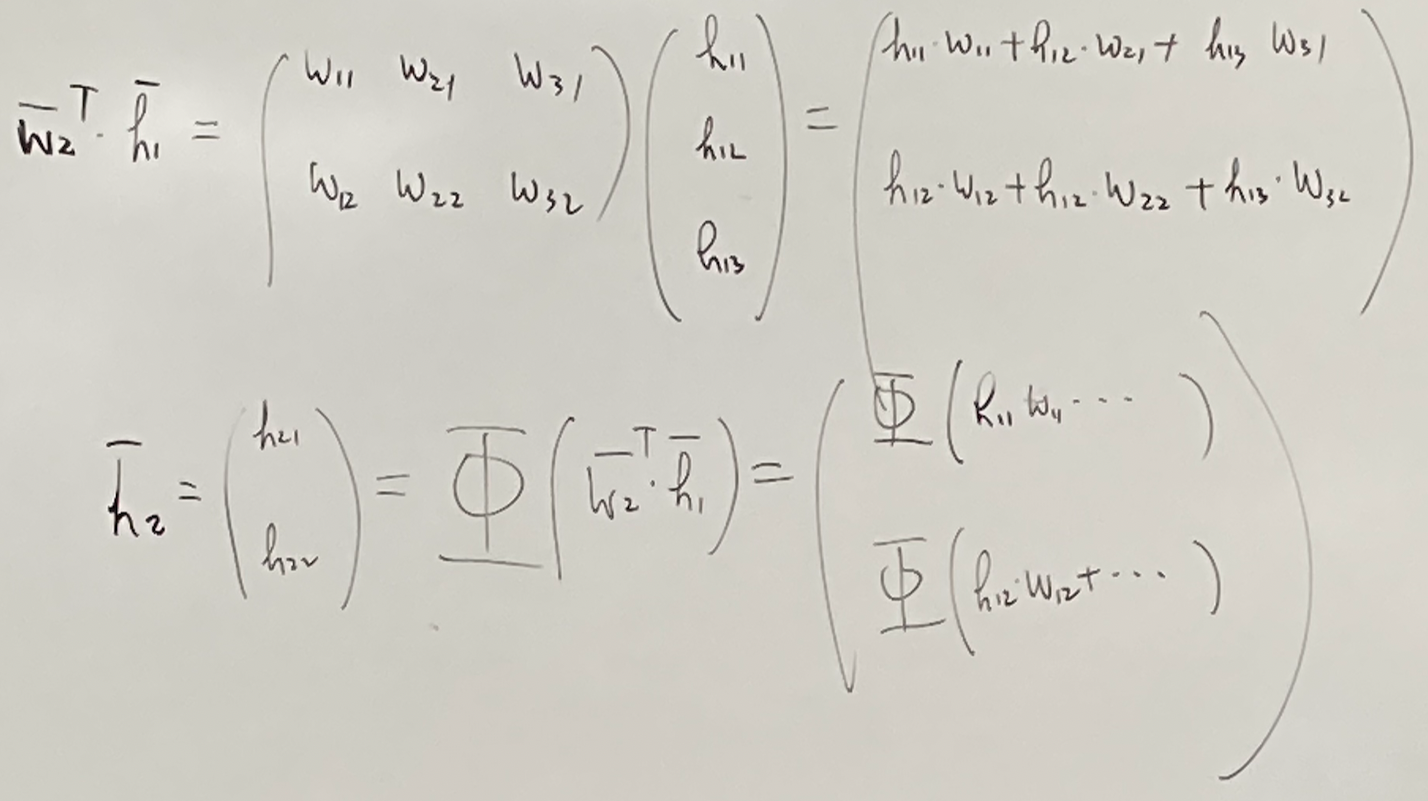 W̅₂ᵀ · h̅₁ = ( w₁₁ w₂₁ w₃₁ ; w₁₂ w₂₂ w₃₂ ) ( h₁₁ ; h₁₂ ; h₁₃ ) = ( h₁₁·w₁₁ + h₁₂·w₂₁ + h₁₃ w₃₁ ; h₁₂·w₁₂ + h₁₂·w₂₂ + h₁₃·w₃₂ )
h̅₂ = ( h₂₁ ; h₂₂ ) = Φ ( W̅₂ᵀ · h̅₁ ) = ( Φ ( h₁₁ w₁₁ ... ) ; Φ ( h₁₂·w₁₂ + ... ) )